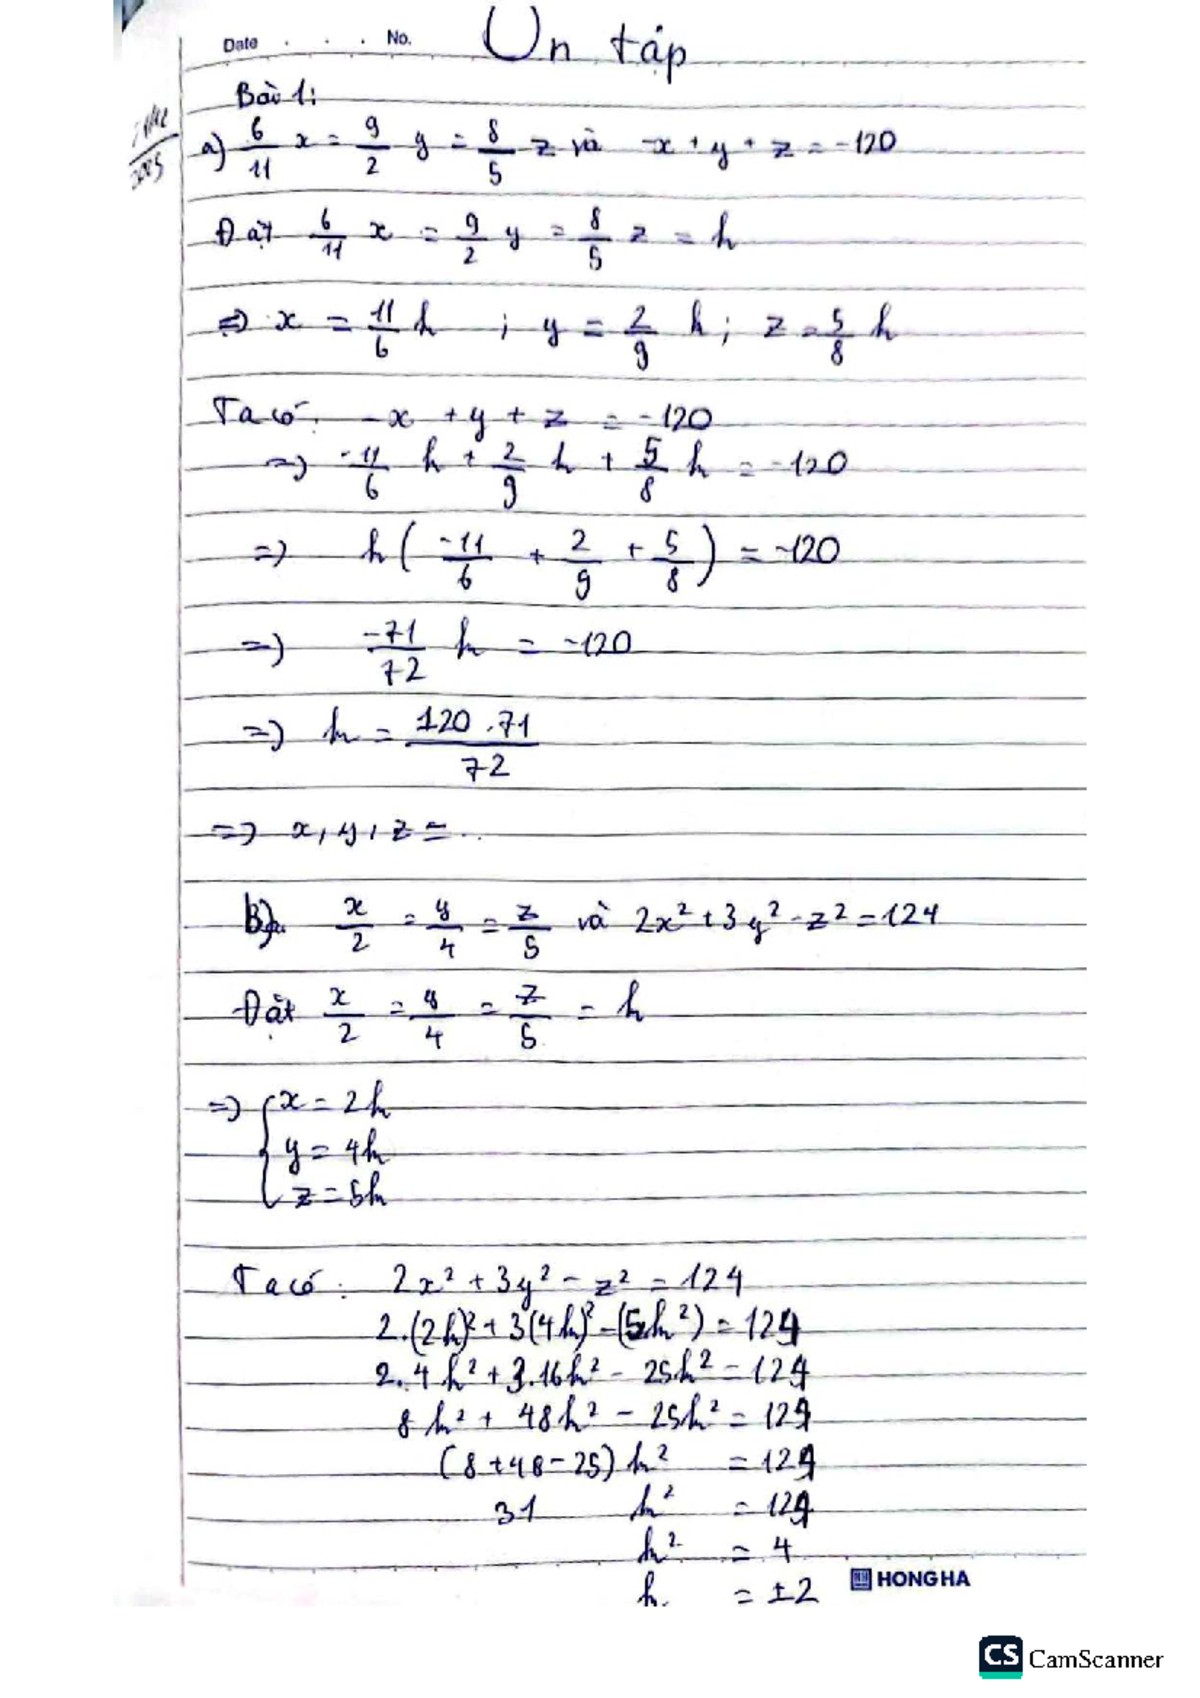 Date . . . . No.
Ôn tập
Bài 1:
a) 6/11 x = 9/2 y = 8/5 z và -x + y + z = -120
Đặt 6/11 x = 9/2 y = 8/5 z = k
=> x = 11/6 k ; y = 2/9 k ; z = 5/8 k
Ta có: -x + y + z = -120
=> -11/6 k + 2/9 k + 5/8 k = -120
=> k ( -11/6 + 2/9 + 5/8 ) = -120
=> -71/72 k = -120
=> k = 120 . 71 / 72
=> x, y, z = ..
B) x/2 = y/4 = z/5 và 2x² + 3y² - z² = 124
Đặt x/2 = y/4 = z/5 = k
=> { x = 2k
y = 4k
z = 5k
Ta có: 2x² + 3y² - z² = 124
2.(2k)² + 3(4k)² - (5k²) = 124
2.4k² + 3.16k² - 25k² = 124
8k² + 48k² - 25k² = 124
(8 + 48 - 25) k² = 124
31 k² = 124
k² = 4
k = ±2
HONG HA
CS CamScanner